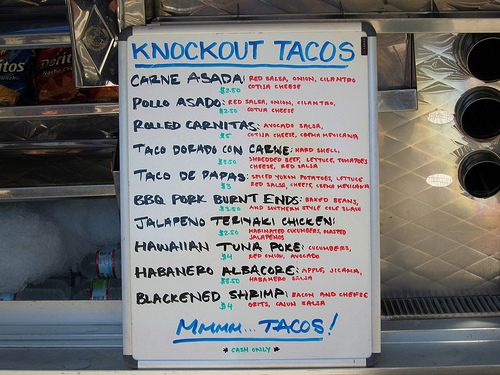 KNOCKOUT TACOS
CARNE ASADA: RED SALSA, ONION, CILANTRO
$2.50 COTIJA CHEESE
POLLO ASADO: RED SALSA, ONION, CILANTRO,
$2.50 COTIJA CHEESE
ROLLED CARNITAS: AVOCADO SALSA,
$5 COTIJA CHEESE, CREMA MEXICANA
TACO DORADO CON CARNE: HARD SHELL,
SHREDDED BEEF, LETTUCE, TOMATOES
CHEESE, RED SALSA
TACO DE PAPAS: SPICED YUKON POTATOES, LETTUCE
$3 RED SALSA, CHEESE, CREMA MEXICANA
BBQ PORK BURNT ENDS: BAKED BEANS,
AND SOUTHERN STYLE COLE SLAW
JALAPENO TERIYAKI CHICKEN:
$2.50 MARINATED CUCUMBERS, ROASTED
JALAPENOS
HAWAIIAN TUNA POKE: CUCUMBERS,
$4 RED ONION, AVOCADO
HABANERO ALBACORE: APPLE, JICAMA,
$3.50 HABANERO SALSA
BLACKENED SHRIMP: BACON AND CHEESE
$4 GRITS, CAJUN SALSA
MMMM... TACOS!
* CASH ONLY *
Doritos